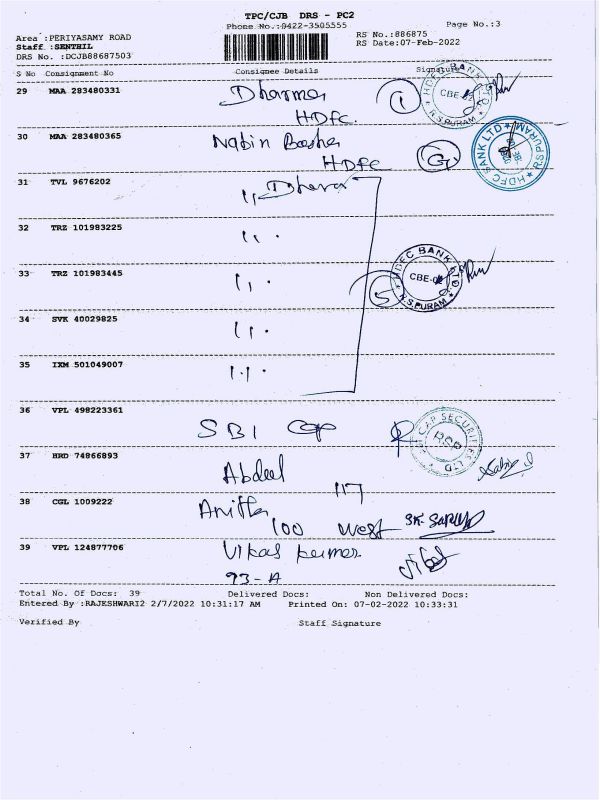 TPC/CJB DRS - PC2
Phone No.:0422-3505555
Page No.:3
Area :PERIYASAMY ROAD
RS No.:886875
Staff :SENTHIL
RS Date:07-Feb-2022
DRS No. :DCJB88687503
S No Consignment No Consignee Details Signature
29 MAA 283480331 Dharma 1
HDFC
HDFC BANK LTD. CBE R.S.PURAM
30 MAA 283480365 Nabin Basha
HDFC
HDFC BANK LTD R.S.PURAM
31 TVL 9676202 " Dharma
32 TRZ 101983225 "
33 TRZ 101983445 " 5
HDFC BANK LTD. CBE R.S.PURAM
34 SVK 40029825 "
35 IXM 501049007 "
36 VPL 498223361 SBI Cap
CAP SECURITIES LTD RSP
37 HRD 74866893 Abdeel
117
38 CGL 1009222 Anitha
100 West
39 VPL 124877706 Vikas kumar
93-A
Total No. Of Docs: 39 Delivered Docs: Non Delivered Docs:
Entered By :RAJESHWARI2 2/7/2022 10:31:17 AM Printed On: 07-02-2022 10:33:31
Verified By Staff Signature